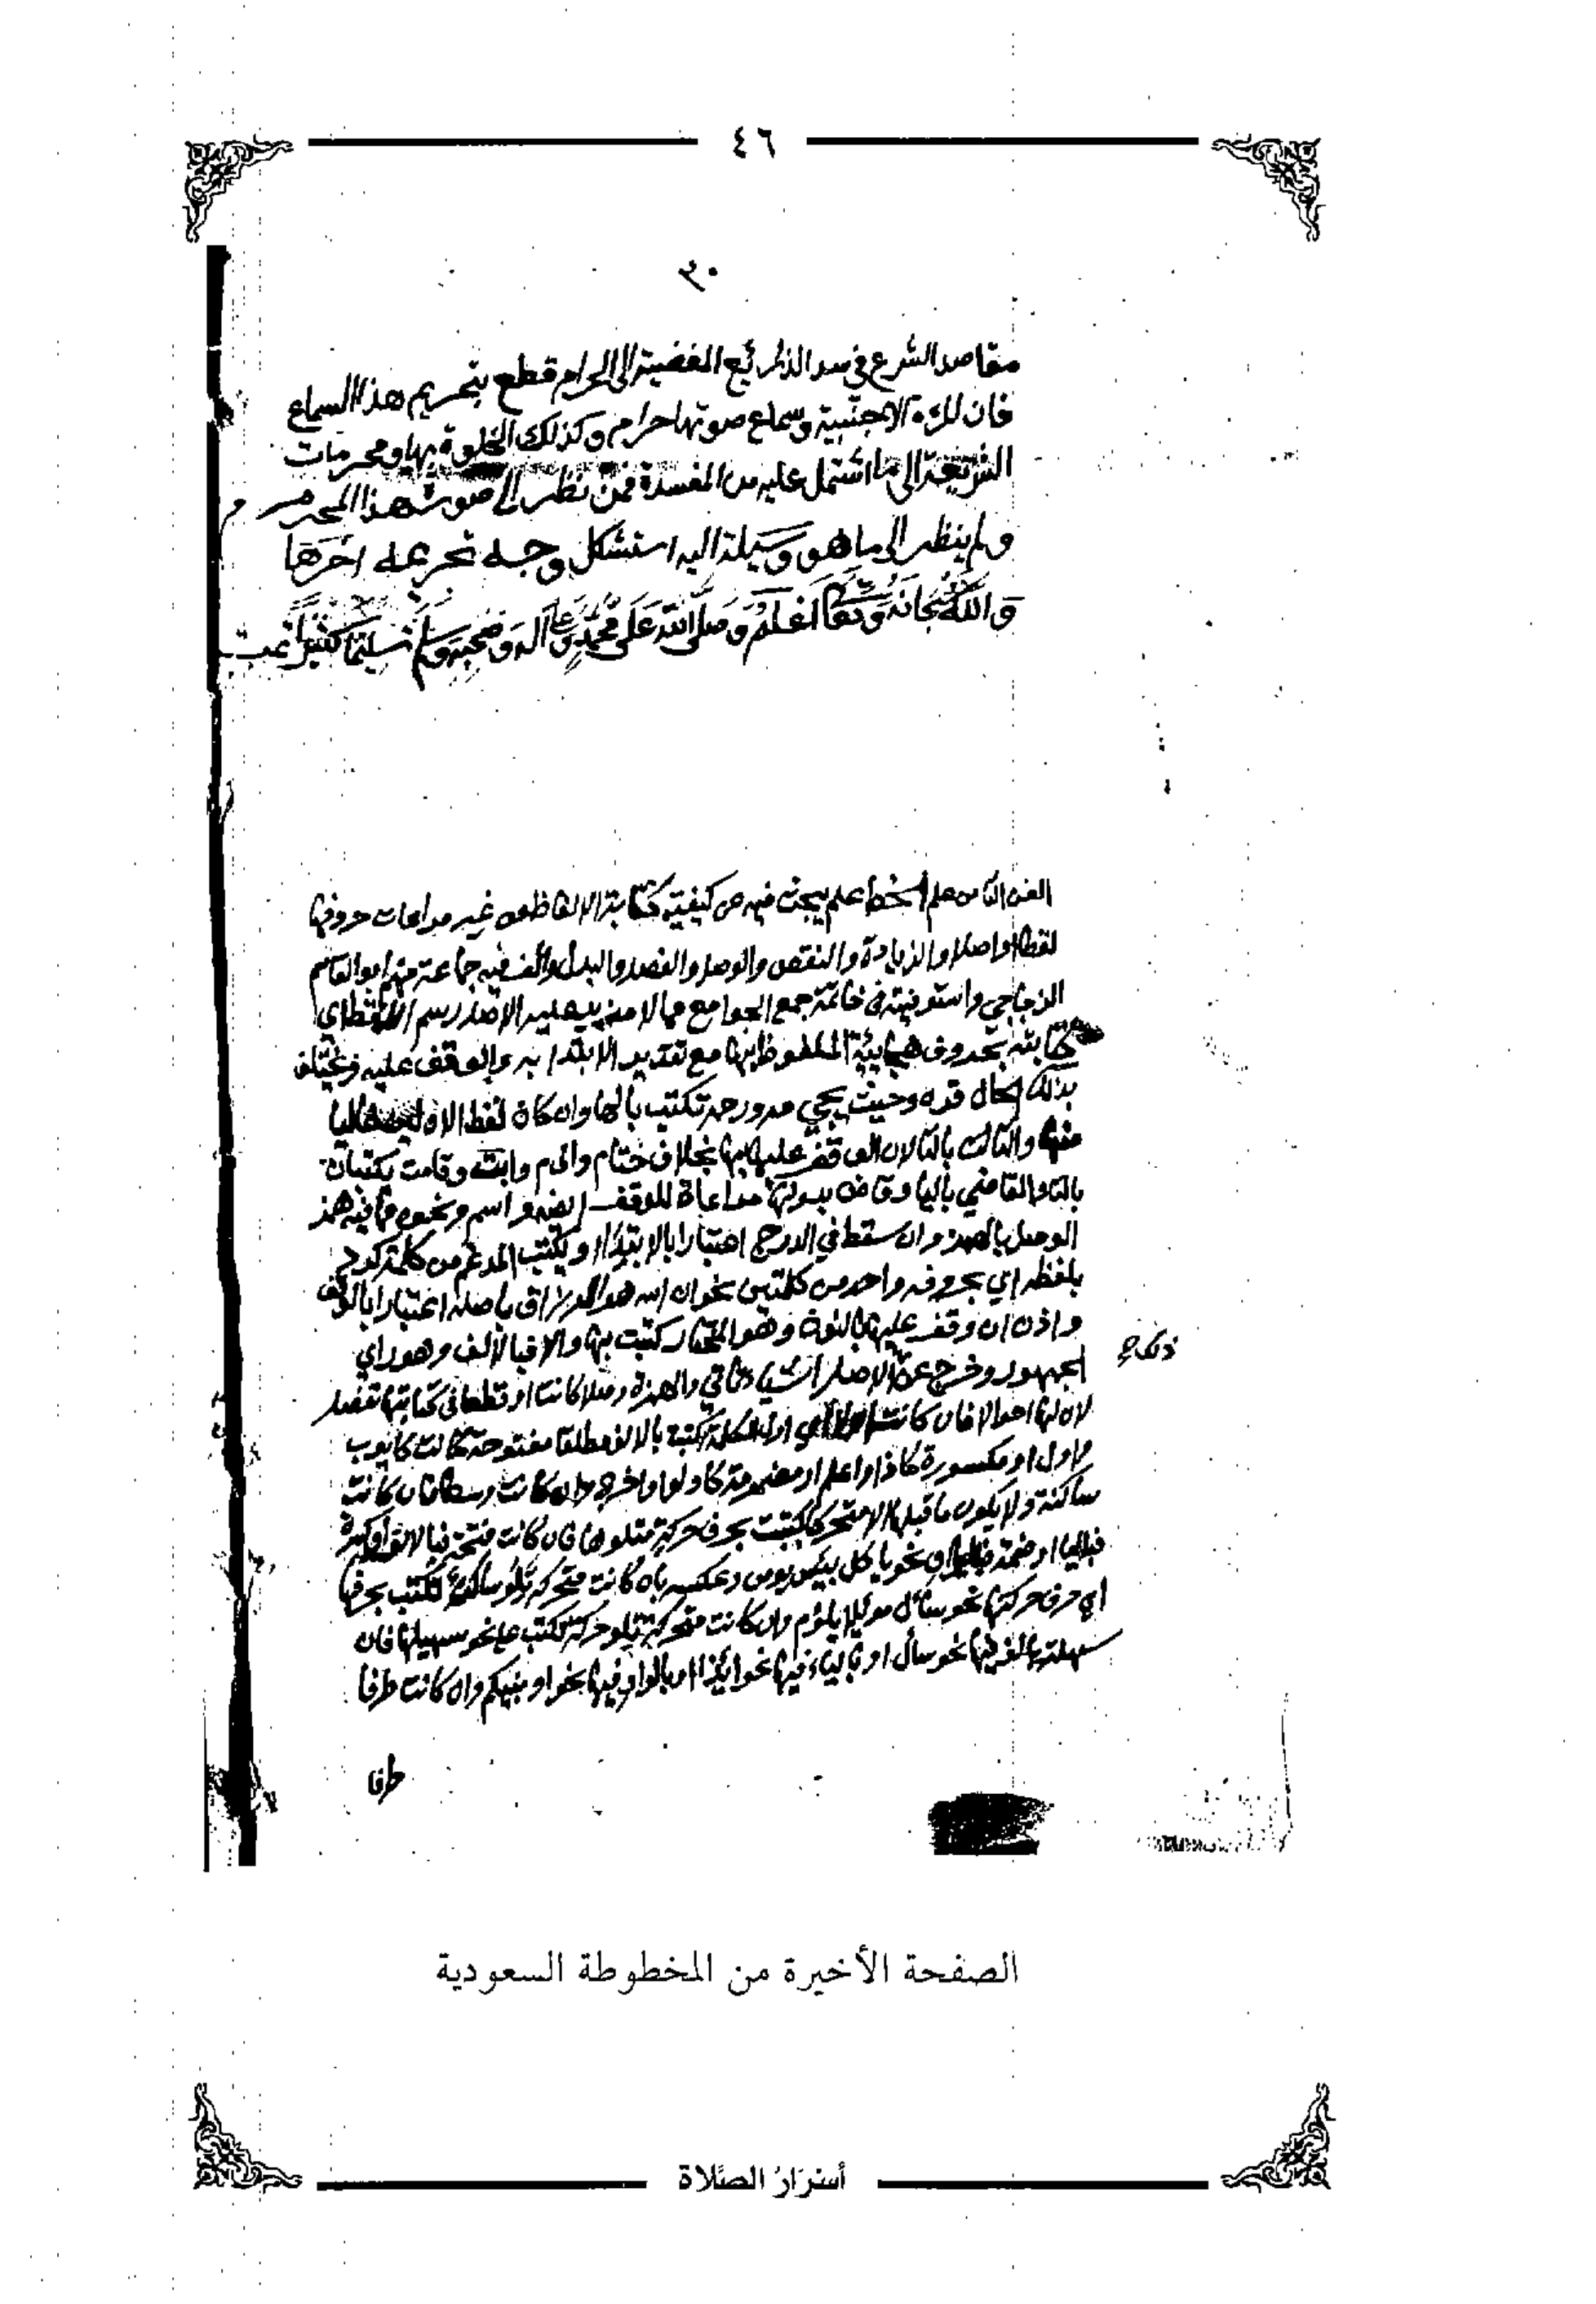 ٤٦
٣٠
مقاصد الشرع في سد الذرائع المفضية الى الحرام قطع بتحريم هذا السماع
فان المرءة الاجنبية وسماع صوتها حرام وكذلك الخلوة بها ومحرمات
الشريعة الى ما اشتمل عليه من المفسدة فمن نظر الى صورة هذا المحرم
ولم ينظر الى ما هو وسيلة اليه استشكل وجه تحريمه اخرها
والله سبحانه وتعالى اعلم وصلى الله على محمد وعلى آله وصحبه وسلم تسليما كثيرا تمت
الفن علم الخط علم يبحث فيه عن كيفية كتابة الالفاظ من غير مراعات حروفها
لفظا او اصلا والزيادة والنقص والوصل والفصل والبدل والف فيه جماعة منهم ابو القاسم
الزجاجي واستوفيته في خاتمة جمع الجوامع مما لا مزيد عليه الاصل رسم اللفظ اي
كتابته بحروف هجائية الملفوظ بها مع تقدير الابتداء به والوقف عليه فيختلف
بذلك الحال قده وحيث يجي مه ورحمة تكتب بالها وان كان لفظ الاول
منها والثالث بالتا لان الوقف عليها بها بخلاف ختام والى م وابنت وقامت يكتبان
بالتا والقاضي باليا وقاض بدونها مراعاة للوقف ايضا واسم ونحوه مما فيه همز
الوصل بالهمز وان سقط في الدرج اعتبارا بالابتداء ويكتب المدغم من كلمة كرد
بلفظه اي بحرف واحد من كلمتين نحو ان الله هو الرزاق باصله اعتبارا بالوقف
واذن ان وقف عليها بالنون وهو المختار كتبت بها والا فبالالف وهو راي
الجمهور وخرج عن الاصل اشياء تاتي والهمزة وصلا كانت او قطعا في كتابتها تفصيل
لان لها احوالا فان كانت اولا اي اول الكلمة كتبت بالالف مطلقا مفتوحة كانت كايوب
واول او مكسورة كاذا واعلم او مضمومة كاولوا واخرج وان كانت وسطا فان كانت
ساكنة ولا يكون ما قبلها الا متحركا كتبت بحرف حركة متلوها فان كانت فتحة فبالالف او كسرة
فباليا او ضمة فبالواو نحو ياكل بئس يومن وعكسه بان كانت متحركة تلو ساكن تكتب بحرفها
اي حرف حركتها نحو يسأل موئلا يلؤم وان كانت متحركة تلو حركة تكتب على نحو تسهيلها فان
سهلت بالف فبها نحو سأل او بالياء فبها نحو ائذا او بالواو فبها نحو اونبئكم وان كانت طرفا
طرفا
الصفحة الأخيرة من المخطوطة السعودية
أسرار الصلاة